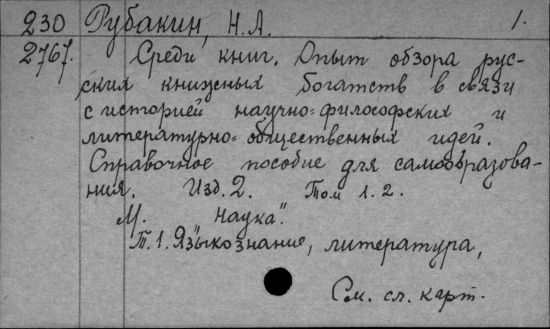 230 Рубакин, Н.А. 1.
2767. Среди книг. Опыт обзора рус-
ских книжных богатств в связи
с историей научно-философских и
литературно-общественных идей.
Справочное пособие для самообразова-
ния. Изд. 2. Том 1. 2.
М. "Наука".
Т. 1. Языкознание, литература,
См. сл. карт.